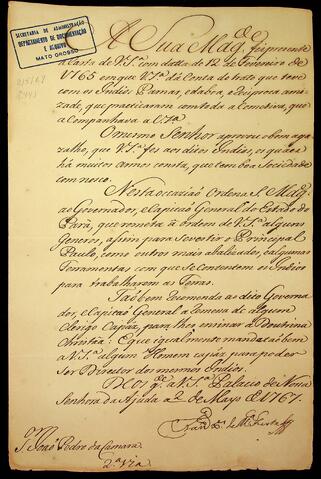 SECRETARIA DE ADMINISTRAÇÃO
DEPARTAMENTO DE DOCUMENTAÇÃO
E ARQUIVO
MATO GROSSO
A Sua Mag.de foi presente
a Carta de V.S.ª com datta de 12 de Fevereiro de
1765 em que V.S.ª dá Conta do trato que teve
com os Indios Pamas, e da boa, e reciproca ami-
zade, que practicaram com toda a Comitiva, que
a Companhava a V.S.ª
O mesmo Senhor aprovou o bom aga-
zalho, que V.S.ª fes aos ditos Indios, os quaes
há muitos annos consta, que tem boa Sociedade
com nosco.
Nesta occazião Ordena S. Mag.e
ao Governador, e Capitão General do Estado do
Pará, que remeta á ordem de V.S.ª alguns
generos, assim para se vestir o Principal
Paulo, como outros mais abalizados, e algumas
Ferramentas com que se contentem os Indios
para trabalharem as Terras.
Tãobem recomenda ao dito Governa-
dor, e Capitão General a remessa de algum
Clerigo Capáz, para lhes ensinar a Doutrina
Christãa: E que igualmente mande tãobem
a V.S.ª algum Homem capáz para poder
Ser Director dos mesmos Indios.
D.s g.de a V.S.ª Palacio de Nossa
Senhora da Ajuda a 2 de Mayo de 1767.
Fran.co X.er de M.ça Furtado
S.r João Pedro da Camara
2.ª Via